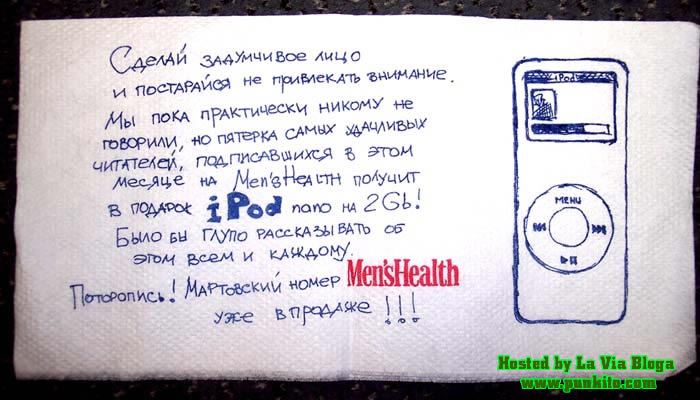 Сделай задумчивое лицо
и постарайся не привлекать внимание.
Мы пока практически никому не
говорили, но пятерка самых удачливых
читателей, подписавшихся в этом
месяце на Men'sHealth получит
в подарок iPod nano на 2Gb!
Было бы глупо рассказывать об
этом всем и каждому.
Поторопись! Мартовский номер Men'sHealth
уже в продаже!!!
iPod
MENU
Hosted by La Via Bloga
www.punkito.com